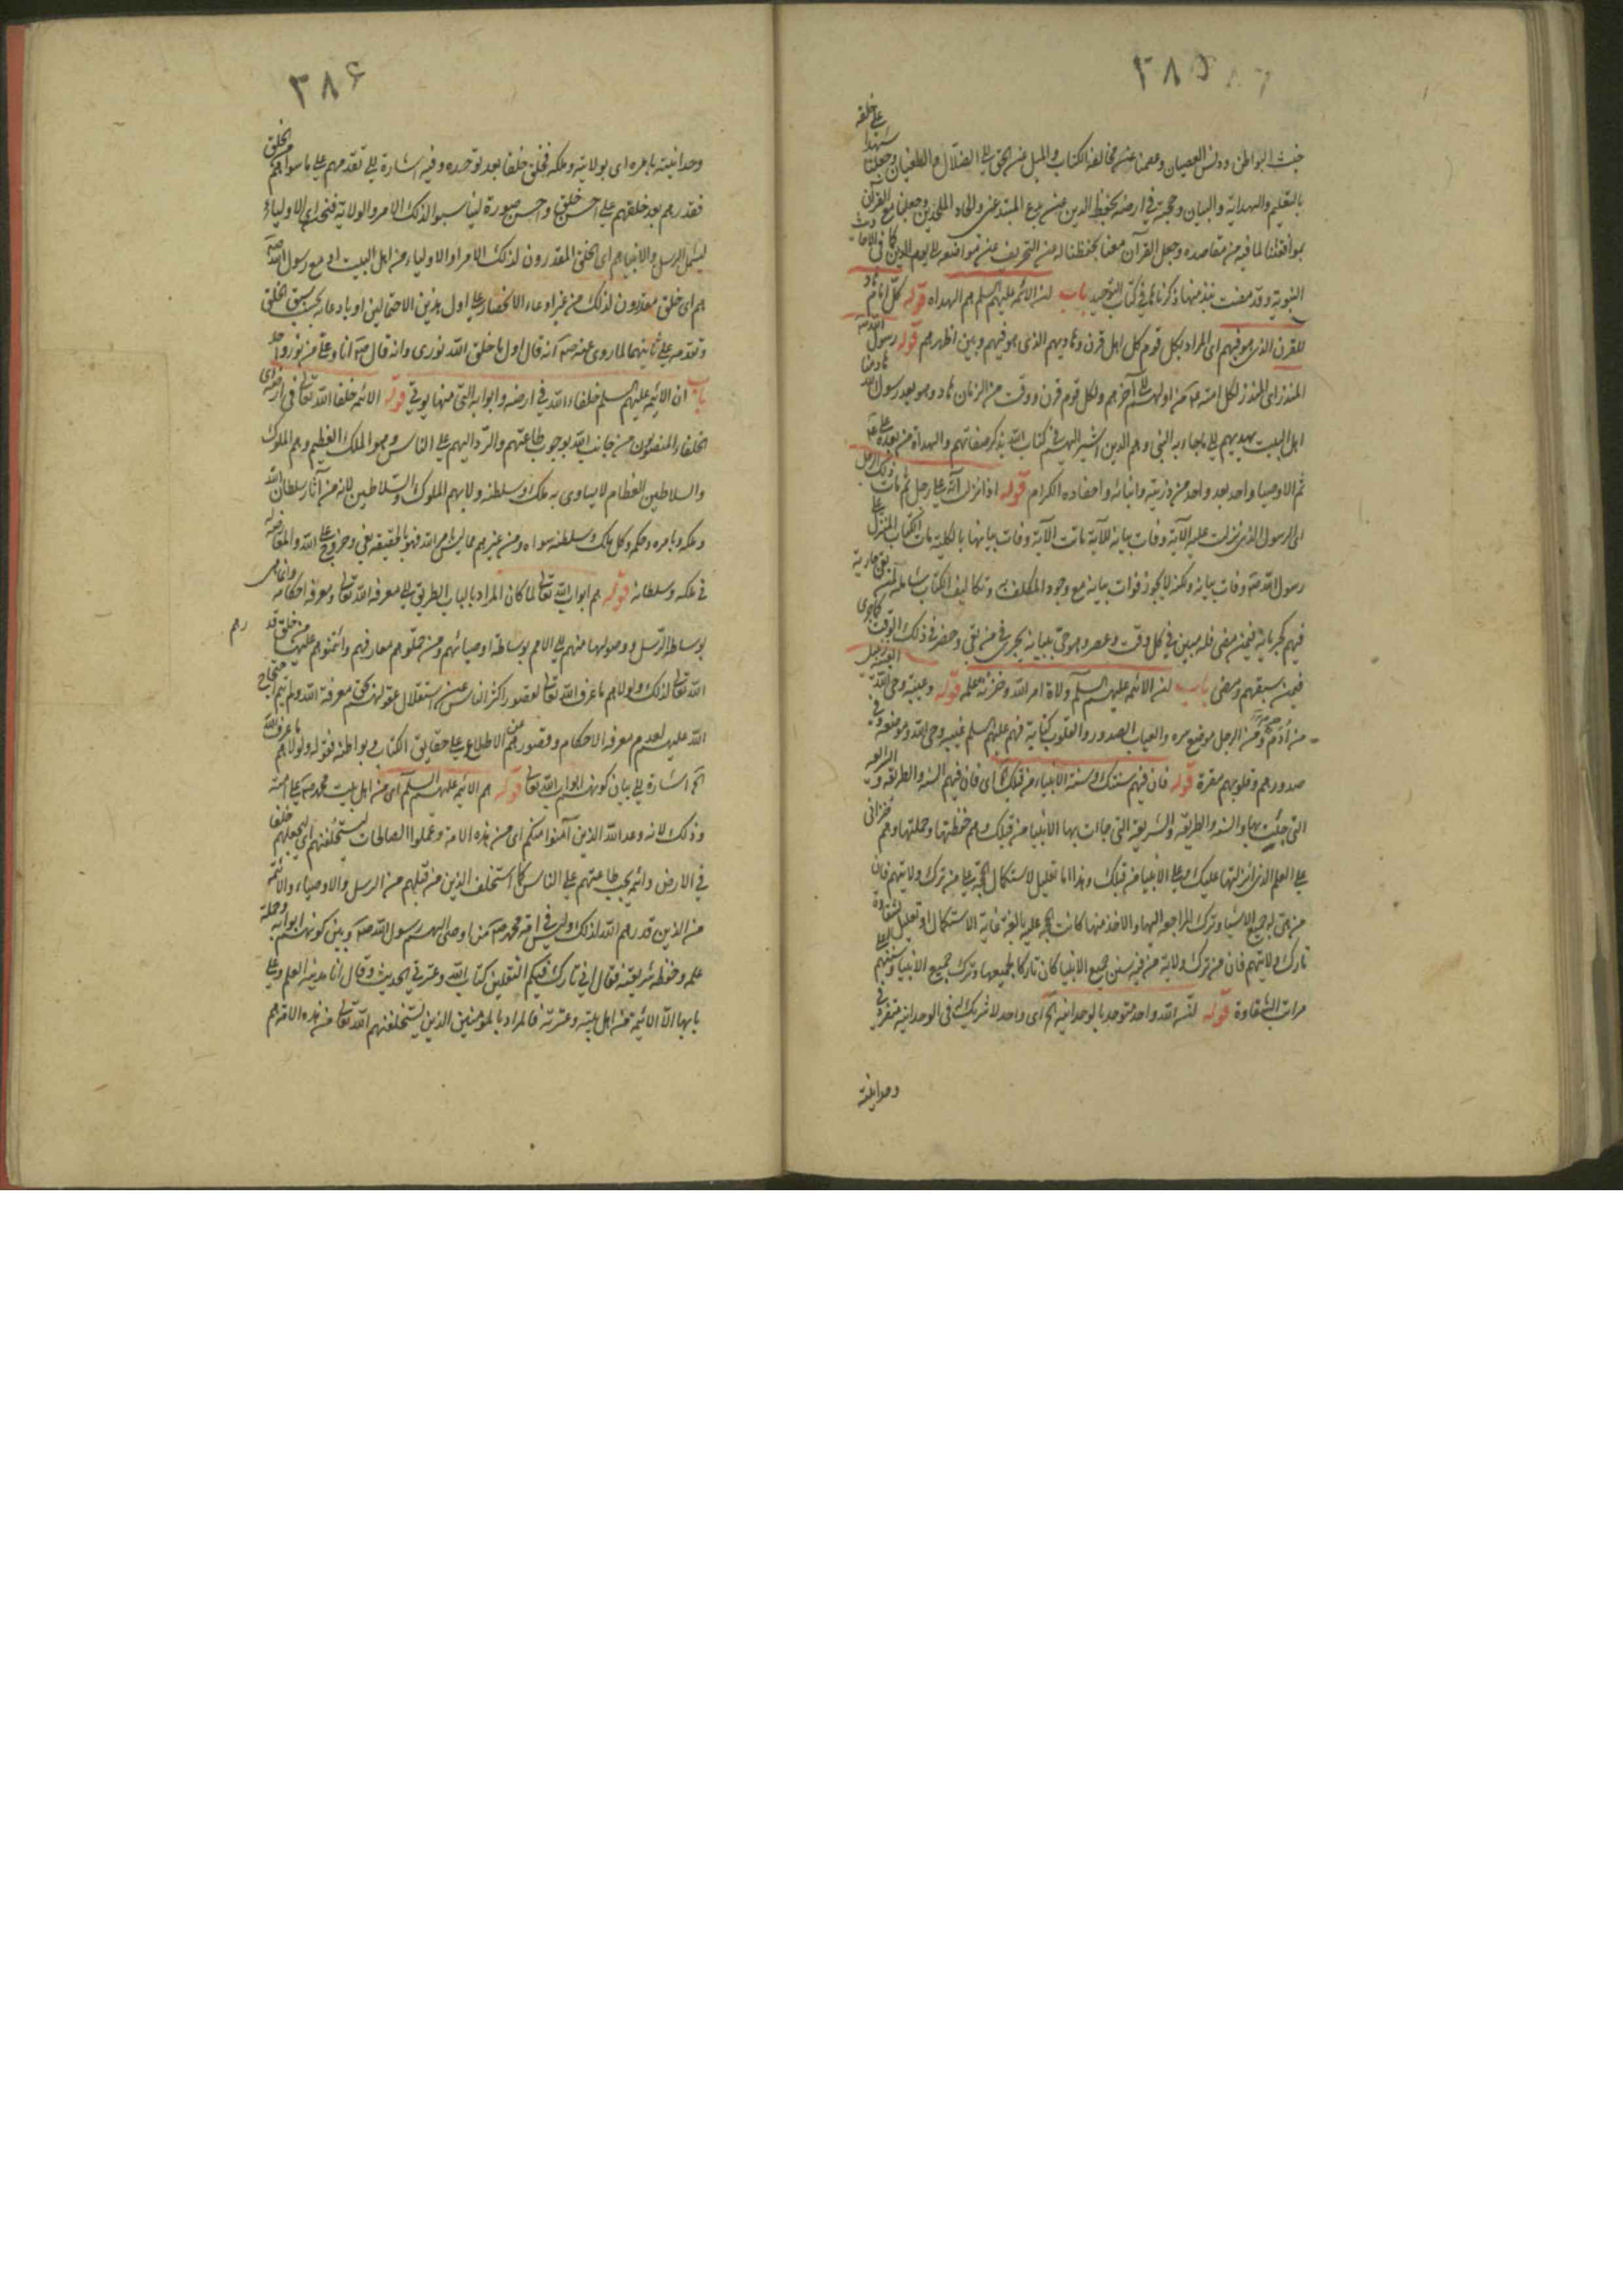 ٣٨٥
خبث البواطن ودنس العصيان وعصمنا عن مخالفة الكتاب والميل عن الحق الى الضلال والطغيان وجعلنا شهداء على خلقه
بالتعليم والهداية والبيان وحجته في ارضه بحفظ الدين عن بدع المبتدعين والحاد الملحدين وجعلنا مع القرآن
بموافقتنا لما فيه من مقاصده وجعل القرآن معنا بحفظنا له عن التحريف عن مواضعه الى يوم الدين كما في الاحاديث
النبوية وقد مضت نبذ منها ذكرناها في كتاب التوحيد باب ان الائمة عليهم السلم هم الهداه قوله كل امام هاد
للقرن الذي هو فيهم اى المراد بكل قوم كل اهل قرن وهاديهم الذى هو فيهم وبين اظهرهم قوله رسول الله
المنذر اى المنذر لكل امته من اولهم الى آخرهم ولكل قوم قرن ووقت من الزمان هاد وهو بعد رسول الله هاد منا
اهل البيت يهديهم الى ما جاء به النبي وهم الذين اشير اليهم في كتاب الله بذكر صفاتهم والهداة من بعده على
ثم الاوصيا واحد بعد واحد من ذريته وابنائه واحفاده الكرام قوله اذا نزلت آية على رجل ثم مات ذلك الرجل
اى الرسول الذى نزلت عليه الآية وفات بيانه للآية ماتت الآية وفات بيانها بالكلية مات الكتاب المنزل على
رسول الله وفات بيانه ولكنه لا يجوز فوات بيانه مع وجود المكلف به وتكاليف الكتاب شاملة لمن بقى جارية
فيهم كجريانه فيمن مضى فله مبين في كل وقت وعصر وهو حى ببيانه يجرى في من بقى وحضر في ذلك الوقت كما جرى
فيمن سبقهم ومضى باب ان الائمة عليهم السلم ولاة امر الله وخزنة علمه قوله وعيبة وحى الله العيبة زبيل
من أدم ومن الرجل موضع سره والعياب الصدور والقلوب كناية فهم عليهم السلم عيبة وحى الله وموضعه وفي
صدورهم وقلوبهم مقره قوله فان فيهم سنتك وسنة الانبياء من قبلك اى فان فيهم السنه والطريقه والشريعه
التي جئت بها والسنة والطريقه والشريعة التي جاءت بها الانبيا من قبلك وهم حفظتها وحملتها وهم خزانى
على العلم الذى انزلتها عليك وعلى الانبيا من قبلك وهذا اما تعليل لاستكمال الحجة على من ترك ولايتهم فان
من هئ له جميع الاشيا وترك المراجعة اليها والاخذ منها كانت الحجة عليه بالغة غاية الاستكمال او تعليل لشقاوة
تارك ولايتهم فان من ترك ولاية من فيه سنن جميع الانبيا كان تاركا لجميعها وترك جميع الانبيا وسننهم اعلى
مراتب الشقاوة قوله ان الله واحد متوحد بالوحدانية اى واحد لا شريك له في الوحدانية متفرد في
وحدانيته
٣٨۶
وحدانيته بامره اى بولايته وملكه فخلق خلقا بعد توحده وفيه اشارة الى تقدمهم على ما سواهم من الخلق
فقدرهم بعد خلقهم على احسن خلق واحسن صورة ليناسبوا لذلك الامر والولاية فنحن اى الاولياء
ليشمل الرسل والانبيا هم اى الخلق المقدرون لذلك الامر او الاولياء من اهل البيت او مع رسول الله
هم اى خلق مقدرون لذلك من غير ادعاء الانحصار على اول هذين الاحتمالين او بادعائه بحسب سبق الخلق
وتقدمه على ثانيهما لما روى عنه انه قال اول ما خلق الله نورى وانه قال انا وعلى من نور واحد
باب ان الائمة عليهم السلم خلفاء الله في ارضه وابوابه التى منها يوتى قوله الائمة خلفا الله تعالى في ارضه اى
الخلفاء المنصوبون من جانب الله بوجوب طاعتهم والرد اليهم على الناس وهو الملك العظيم وهم الملوك
والسلاطين العظام لا يساوى به ملك وسلطنة ولا بهم الملوك والسلاطين لانه من آثار سلطان الله
وملكه وبامره وحكمه وكل ملك وسلطنة سواه ومن غيرهم مما ليس من الله فهو بالحقيقة بغى وخروج على الله والمعارضة
في ملكه وسلطانه قوله هم ابواب الله تعالى لما كان المراد بالباب الطريق الى معرفة الله تعالى ومعرفة احكامه وانما هى
بوساطة الرسل ووصولها منهم الى الامم بوساطة اوصيائهم ومن حملوهم معارفهم وائتمنوهم عليها من خلق قدرهم
الله تعالى لذلك ولولاهم ما عرف الله تعالى لقصور اكثر الناس عن استقلال عقولهم بحق معرفة الله ولم يتم احتجاج
الله عليهم لعدم معرفة الاحكام وقصورهم عن الاطلاع على حقايق الكتاب وبواطنه فقوله ولولاهم ما عرف الله
الخ اشارة الى بيان كونهم ابواب الله تعالى قوله هم الائمة عليهم السلم اى من اهل بيت محمد على امته
وذلك لانه وعد الله الذين آمنوا منكم اى من هذه الامة وعملوا الصالحات ليستخلفنهم اى ليجعلهم خلفا
في الارض وائمة يجب طاعتهم على الناس كما استخلف الذين من قبلهم من الرسل والاوصياء والائمة
من الذين قدرهم الله لذلك وليس في امة محمد من اوصى اليهم رسول الله وبين كونهم ابوابه وحملة
علمه وحفظة شريعته فقال انى تارك فيكم الثقلين كتاب الله وعترتى الحديث وقال انا مدينة العلم وعلى
بابها الا الائمة من اهل بيته وعترته فالمراد بالمؤمنين الذين ليستخلفنهم الله تعالى من هذه الامة هم